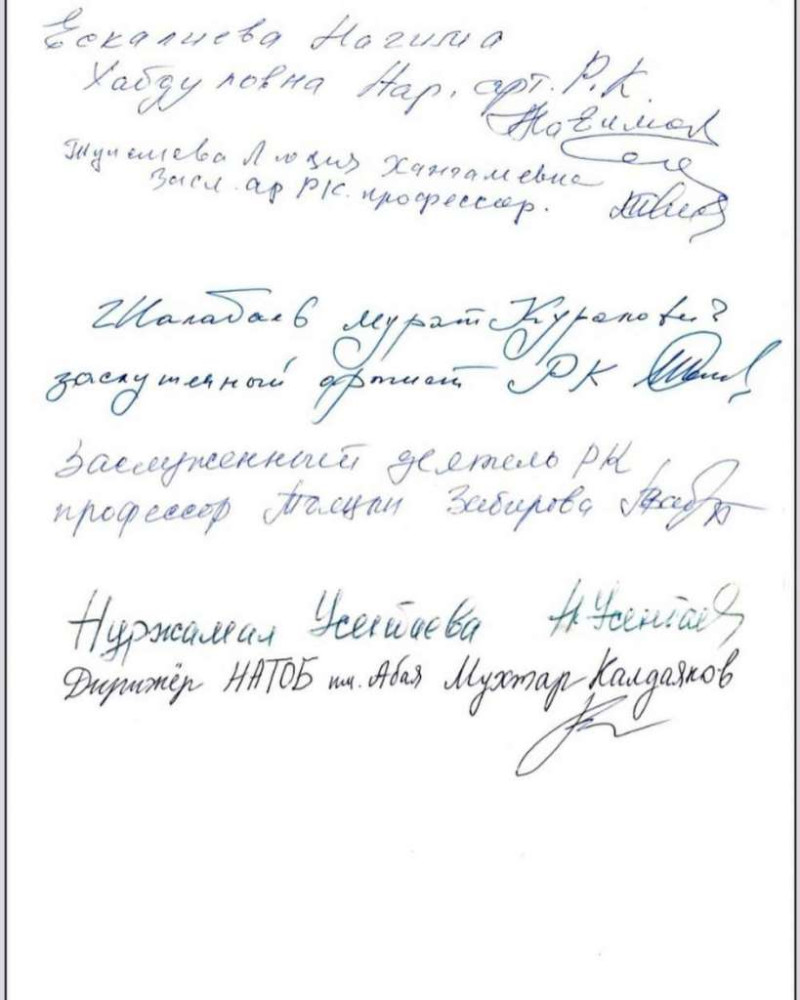 Ескалиева Нагима
Хабдуловна Нар. арт. Р.К.
Нагима
Люция
Засл. ар РК. профессор.
Шалабаев Мурат
заслуженный артист РК
Заслуженный деятель РК
профессор Толқын Забирова
Нуржамал Усенбаева Н Усенбаев
Дирижёр НАТОБ им. Абая Мухтар Калдаяков